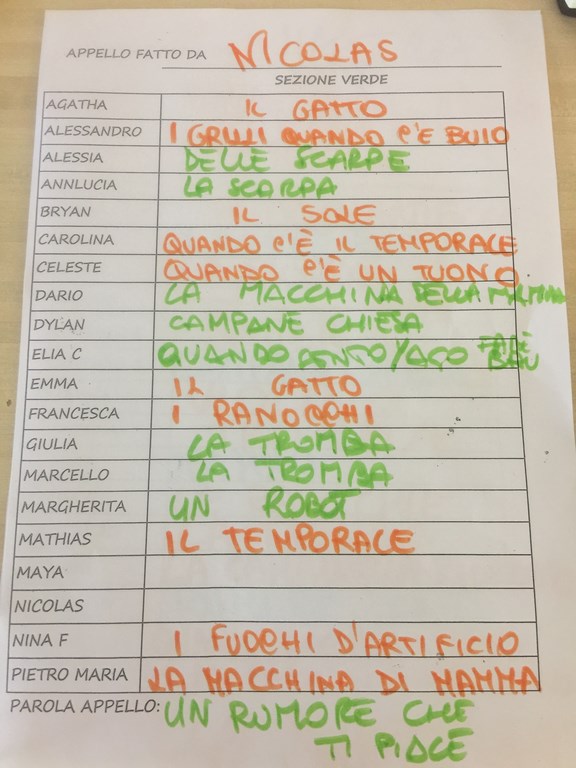 APPELLO FATTO DA NICOLAS
SEZIONE VERDE
AGATHA IL GATTO
ALESSANDRO I GRILLI QUANDO C'E BUIO
ALESSIA DELLE SCARPE
ANNLUCIA LA SCARPA
BRYAN IL SOLE
CAROLINA QUANDO C'È IL TEMPORALE
CELESTE QUANDO C'È UN TUONO
DARIO LA MACCHINA DELLA MAMMA
DYLAN CAMPANE CHIESA
ELIA C QUANDO FA BAU
EMMA IL GATTO
FRANCESCA I RANOCCHI
GIULIA LA TROMBA
MARCELLO LA TROMBA
MARGHERITA UN ROBOT
MATHIAS IL TEMPORALE
MAYA
NICOLAS
NINA F I FUOCHI D'ARTIFICIO
PIETRO MARIA LA MACCHINA DI MAMMA
PAROLA APPELLO: UN RUMORE CHE
TI PIACE